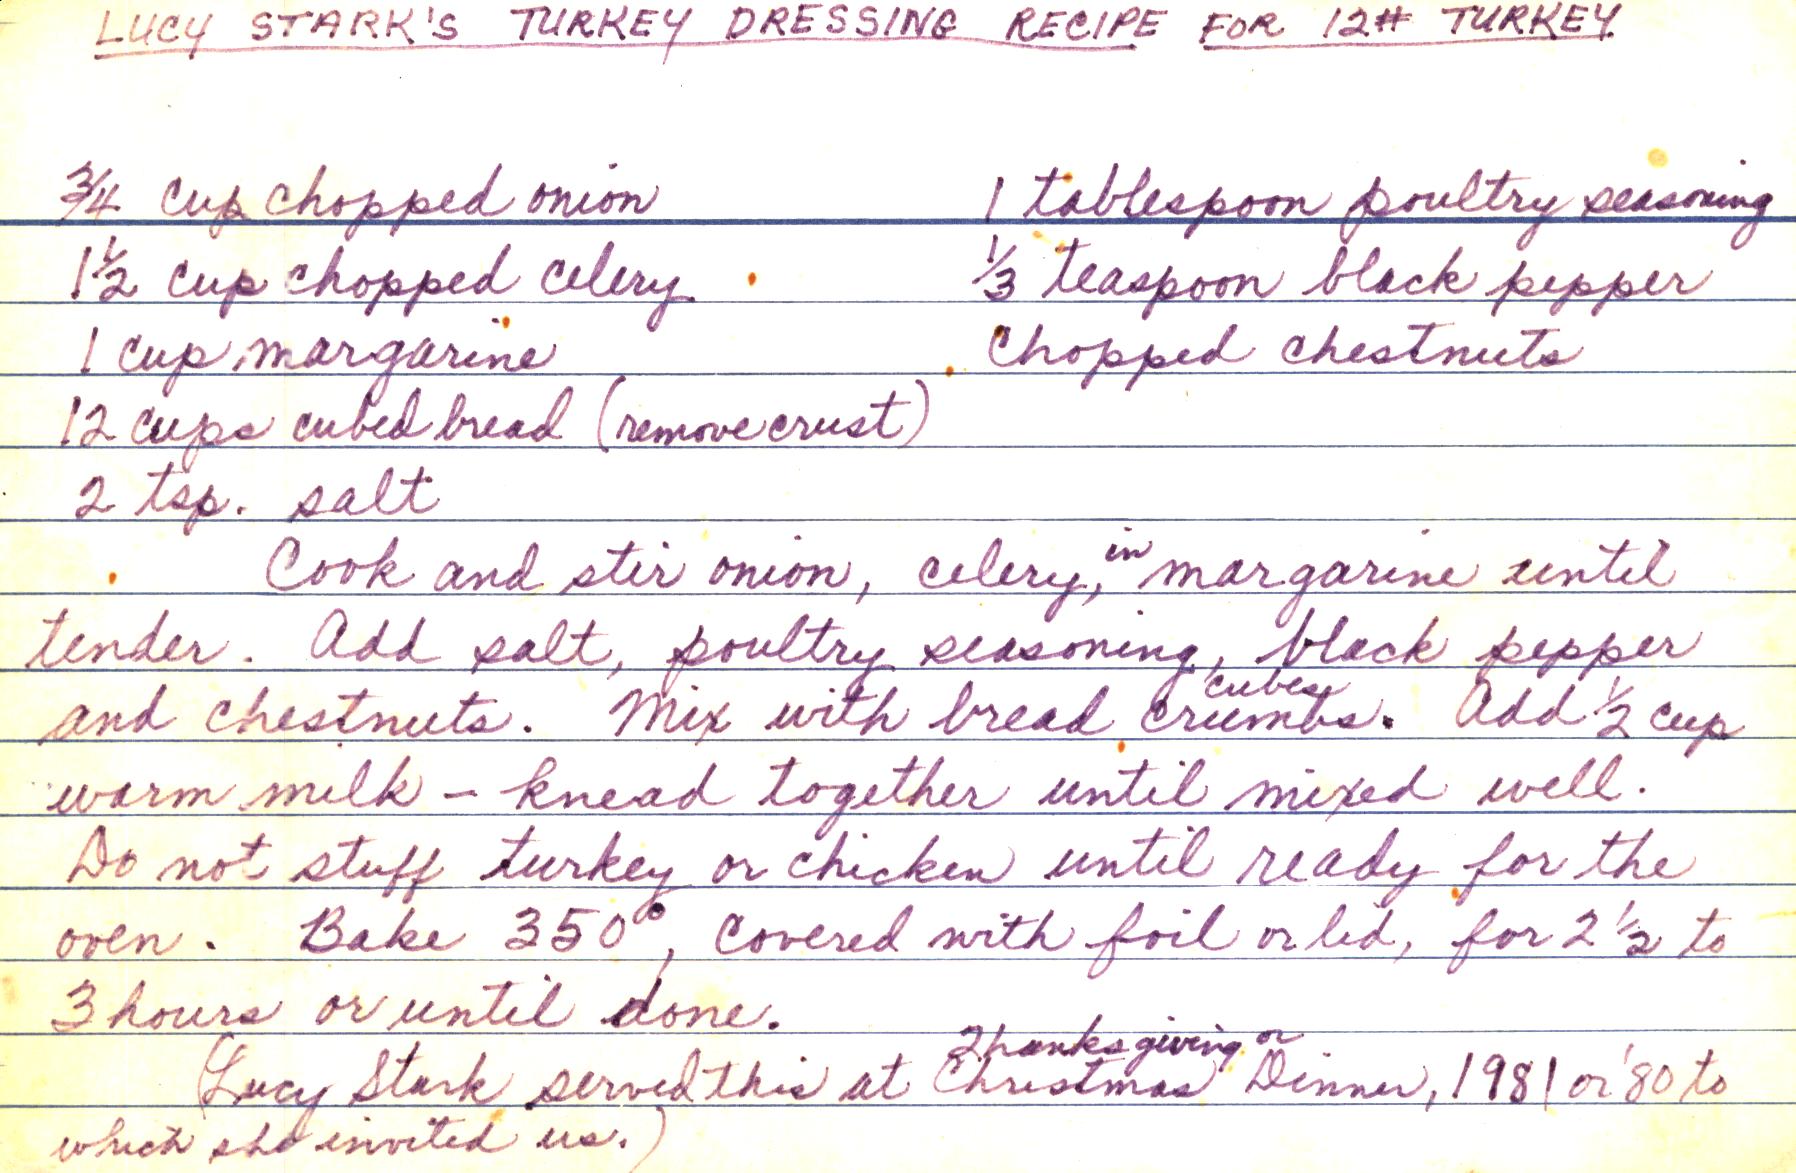 LUCY STARK'S TURKEY DRESSING RECIPE FOR 12# TURKEY
3/4 cup chopped onion
1 1/2 cup chopped celery
1 cup margarine
12 cups cubed bread (remove crust)
2 tsp. salt
1 tablespoon poultry seasoning
1/3 teaspoon black pepper
Chopped chestnuts
Cook and stir onion, celery, in margarine until
tender. Add salt, poultry seasoning, black pepper
and chestnuts. Mix with bread crumbs. Add 1/2 cup
cubes
warm milk – knead together until mixed well.
Do not stuff turkey or chicken until ready for the
oven. Bake 350°, covered with foil or lid, for 2 1/2 to
3 hours or until done.
Thanksgiving or
(Lucy Stark served this at Christmas Dinner, 1981 or '80 to
which she invited us.)